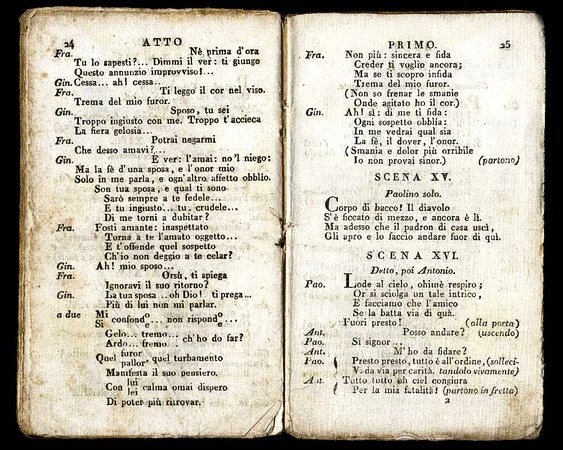 24 ATTO
Fra. Nè prima d'ora
Tu lo sapesti?... Dimmi il ver: ti giungo
Questo annunzio improvviso!...
Gin. Cessa... ah! cessa..
Fra. Ti leggo il cor nel viso.
Trema del mio furor.
Gin. Sposo, tu sei
Troppo ingiusto con me. Troppo t'accieca
La fiera gelosia...
Fra. Potrai negarmi
Che desso amavi?...
Gin. E ver: l'amai: no'l niego:
Ma la fè d'una sposa, e l'onor mio
Solo in me parla, e ogn'altro affetto obblio.
Son tua sposa, e qual ti sono
Sarò sempre a te fedele...
E tu ingiusto... tu, crudele...
Di me torni a dubitar?
Fra. Fosti amante: inaspettato
Torna a te l'amato oggetto...
E t'offende quel sospetto
Ch'io non deggio a te celar?
Gin. Ah! mio sposo...
Fra. Orsù, ti spiega
Ignoravi il suo ritorno?
Gin. La tua sposa .. oh Dio! ti prega...
Più di lui non mi parlar.
a due Mi
Si confond o e .. non rispond o e ...
Gelo... tremo...
Ardo... fremo... ch'ho do far?
Quel furor
pallor quel turbamento
Manifesta il suo pensiero.
Con lui
lei calma omai dispero
Di poter più ritrovar.
PRIMO. 25
Fra. Non più: sincera e fida
Creder ti voglio ancora;
Ma se ti scopro infida
Trema del mio furor.
(Non so frenar le smanie
Onde agitato ho il cor.)
Gin. Ah! sì: di me ti fida:
Ogni sospetto obblía:
In me vedrai qual sia
La fè, il dover, l'onor.
(Smania e dolor più orribile
Io non provai sinor.) (partono)
SCENA XV.
Paolino solo.
Corpo di bacco! Il diavolo
S'è ficcato di mezzo, e ancora è lì.
Ma adesso che il padron di casa uscì,
Gli apro e lo faccio andare fuor di quì.
SCENA XVI.
Detto, poi Antonio.
Pao. Lode al cielo, ohimè respiro;
Or si sciolga un tale intrico,
E facciamo che l'amico
Se la batta via di quà.
Fuori presto! (alla porta)
Ant. Posso andare? (uscendo)
Pao. Sì signor...
Ant. M'ho da fidare?
Pao. Presto presto, tutto è all'ordine, (solleci-
Vada via per carità. tandolo vivamente)
Ant. Tutto tutto oh ciel congiura
Per la mia fatalità! (partono in fretta)
2